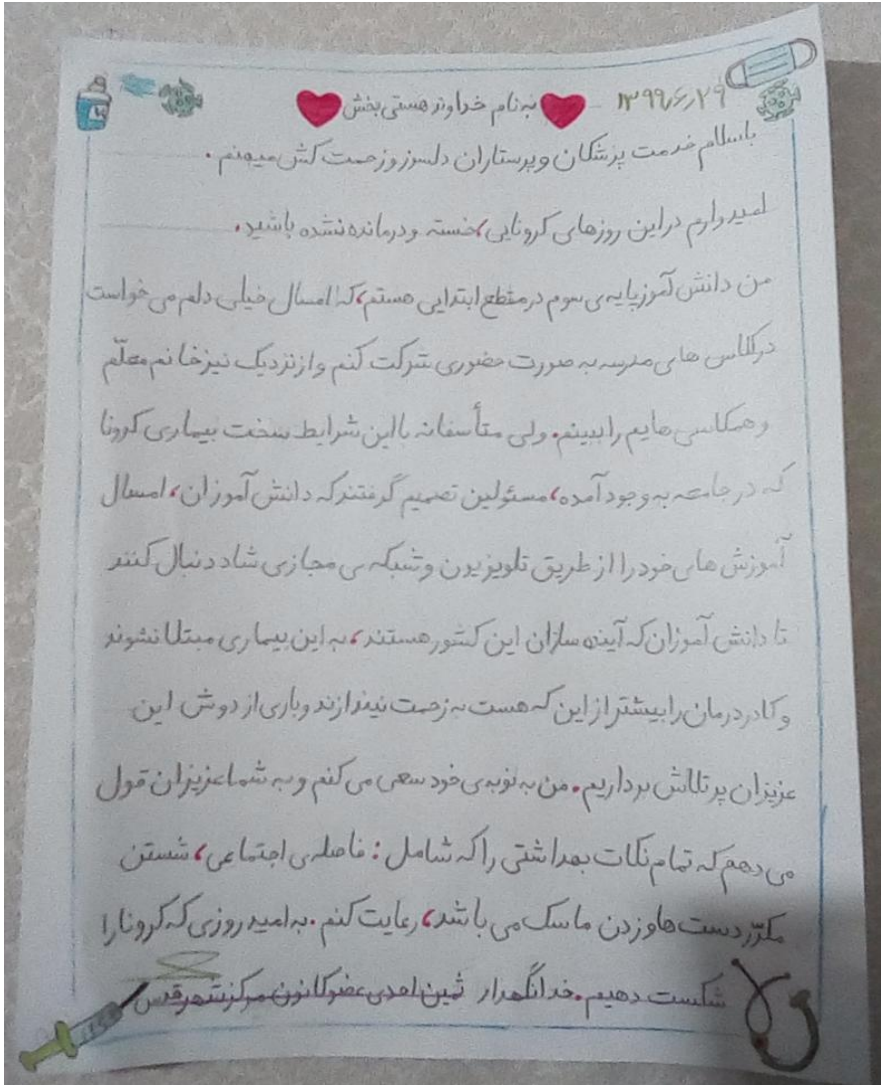 به نام خداوند هستی بخش ۱۳۹۹/۶/۲۹
باسلام خدمت پزشکان و پرستاران دلسوز و زحمت کش میهنم.
امیدوارم در این روزهای کرونایی، خسته و درمانده نشده باشید.
من دانش آموز پایه‌ی سوم در مقطع ابتدایی هستم، که امسال خیلی دلم می خواست
در کلاس های مدرسه به صورت حضوری شرکت کنم و از نزدیک نیز خانم معلّم
و همکلاسی هایم را ببینم. ولی متأسفانه با این شرایط سخت بیماری کرونا
که در جامعه به وجود آمده، مسئولین تصمیم گرفتند که دانش آموزان، امسال
آموزش های خود را از طریق تلویزیون و شبکه ی مجازی شاد دنبال کنند
تا دانش آموزان که آینده سازان این کشور هستند، به این بیماری مبتلا نشوند
و کادر درمان را بیشتر از این که هست به زحمت نیندازند و باری از دوش این
عزیزان پر تلاش برداریم. من به نوبه‌ی خود سعی می کنم و به شما عزیزان قول
می دهم که تمام نکات بهداشتی را که شامل: فاصله ی اجتماعی، شستن
مکرّر دست ها و زدن ماسک می باشد، رعایت کنم. به امید روزی که کرونا را
شکست دهیم. خدانگهدار ثمین احدی عضو کانون مرکز شهر قدس